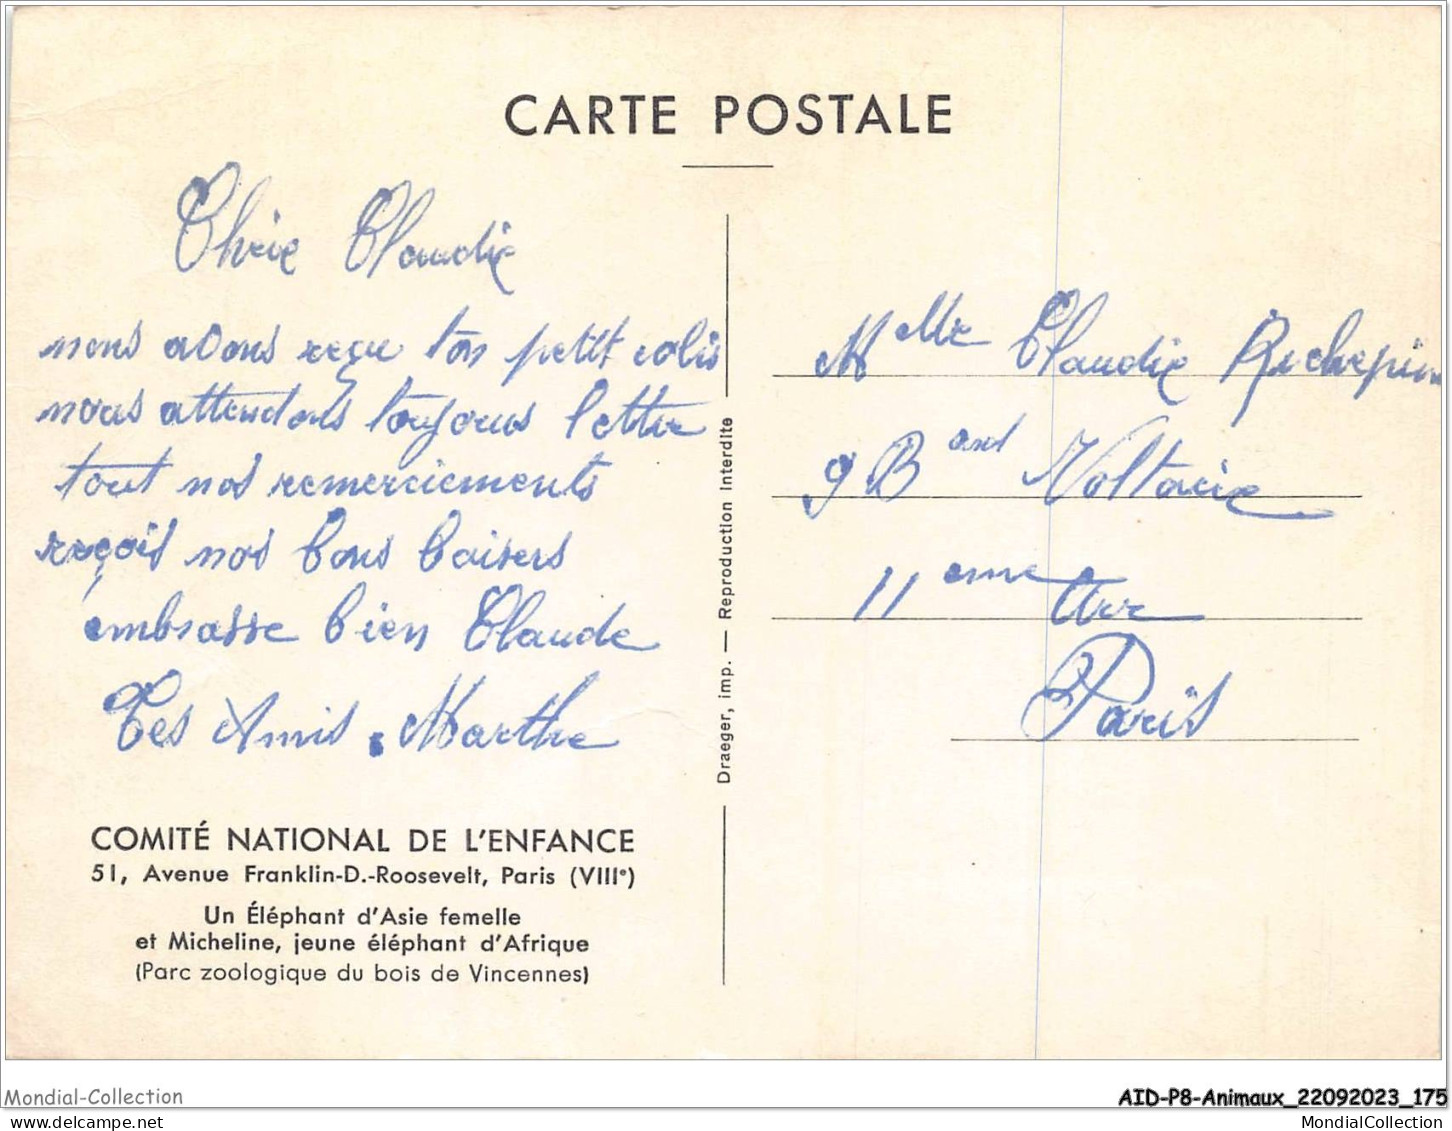 CARTE POSTALE
Chère Claudie
nous avons reçu ton petit colis
nous attendons toujours lettre
tout nos remerciements
reçois nos bons baisers
embrasse bien Claude
Tes Amis. Marthe
COMITÉ NATIONAL DE L'ENFANCE
51, Avenue Franklin-D.-Roosevelt, Paris (VIIIe)
Un Éléphant d'Asie femelle
et Micheline, jeune éléphant d'Afrique
(Parc zoologique du bois de Vincennes)
Draeger, imp. — Reproduction interdite
Melle Claudie Richepin
9 Bard Voltaire
11eme Arr
Paris
Mondial-Collection
AID-P8-Animaux_22092023_175
MondialCollection